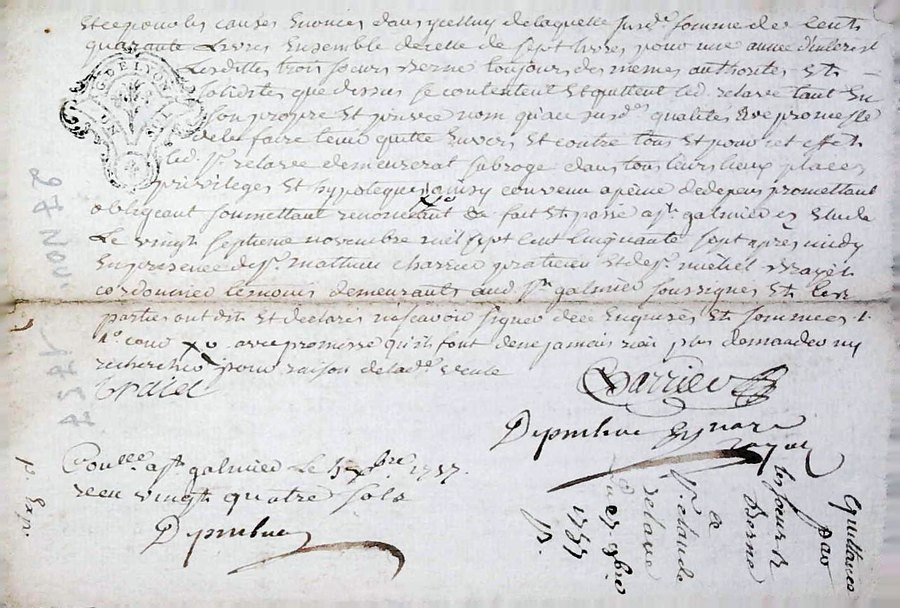 et ce pour les causes enoncées dans ycelluy de laquelle susd.e somme de cents
quarante livres ensemble de celle de sept livres pour une année d'interest
lesdittes trois soeurs Berne toujours des memes authorités et
solidités que dessus se contentent et quittent led. relave tant en
son propre et privée nom qu'au susd.es qualités avec promesse
de le faire tenir quitte envers et contre tous et pour cet effet
led. Sr. relave demeurerat subrogé dans tous leurs lieux places
privileges et hypoteques ainsy convenu a peine de depens promettant
obligeant soumettant renoncant & fait et passé a St. galmier es etude
le vingt septieme novembre mil sept cent cinquante sept après midy
en presence de Sr. mathieu charrier praticien et de Sr. michel
cordonnier temoins demeurants aud. St. galmier soussignés et les
parties ont dit et declarés ne scavoir signer de ce enquises et sommées
avec promesse qu'ils font de ne jamais rien plus demander ny
rechercher pour raison de lad.e vente
Charrier
Con.llé a St. galmier le xbre 1757.
reçu vingt quatre sols
p. Exp.
quittance
par
les soeurs
Berne
a
Sr. claude
relave
du 27 9bre
1757
27 Nov. 1757
G. DE LYON